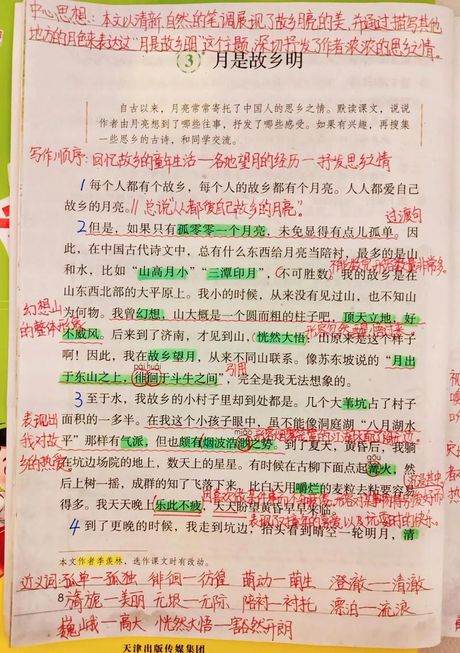 中心思想：本文以清新、自然的笔调展现了故乡月亮的美，并通过描写其他
地方的月色来表达过“月是故乡明”这个主题，深切抒发了作者浓浓的思乡之情。
3 月是故乡明
自古以来，月亮常常寄托了中国人的思乡之情。默读课文，说说
作者由月亮想到了哪些往事，抒发了哪些感受。如果有兴趣，再搜集
一些思乡的古诗，和同学交流。
写作顺序：回忆故乡的童年生活—各地望月的经历—抒发思乡之情
1 每个人都有个故乡，每个人的故乡都有个月亮。人人都爱自己
故乡的月亮。// 总说“人人都爱自己故乡的月亮。” 过渡句
2 但是，如果只有孤零零一个月亮，未免显得有点儿孤单。因
此，在中国古代诗文中，总有什么东西给月亮当陪衬，最多的是山
和水，比如“山高月小”“三潭印月”，不可胜数。我的故乡是在
山东西北部的大平原上。我小的时候，从来没有见过山，也不知山
幻想山
的整体形象
为何物。我曾幻想，山大概是一个圆而粗的柱子吧，顶天立地，好
不威风。后来到了济南，才见到山，恍然大悟：山原来是这个样子
啊！因此，我在故乡望月，从来不同山联系。像苏东坡说的“月出
引用
pái huái
于东山之上，徘徊于斗牛之间”，完全是我无法想象的。
3 至于水，我故乡的小村子里却到处都是。几个大苇坑占了村子
面积的一多半。在我这个小孩子眼中，虽不能像洞庭湖“八月湖水
表现出
我对故乡
的热爱
miǎo
平”那样有气派，但也颇有烟波浩渺之势。到了夏天，黄昏后，我躺
在坑边场院的地上，数天上的星星。有时候在古柳下面点起篝火，然
gōu
后上树一摇，成群的知了飞落下来，比白天用嚼烂的麦粒去粘要容易
得多。我天天晚上乐此不疲，天天盼望黄昏早早来临。
4 到了更晚的时候，我走到坑边，抬头看到晴空一轮明月，清
本文作者季羡林，选作课文时有改动。
近义词：孤单—孤独 徘徊—彷徨 萌动—萌生 澄澈—清澈
8
旖旎—美丽 无垠—无际 陪衬—衬托 漂泊—流浪
巍峨—高大 恍然大悟—豁然开朗
天津出版传媒集团